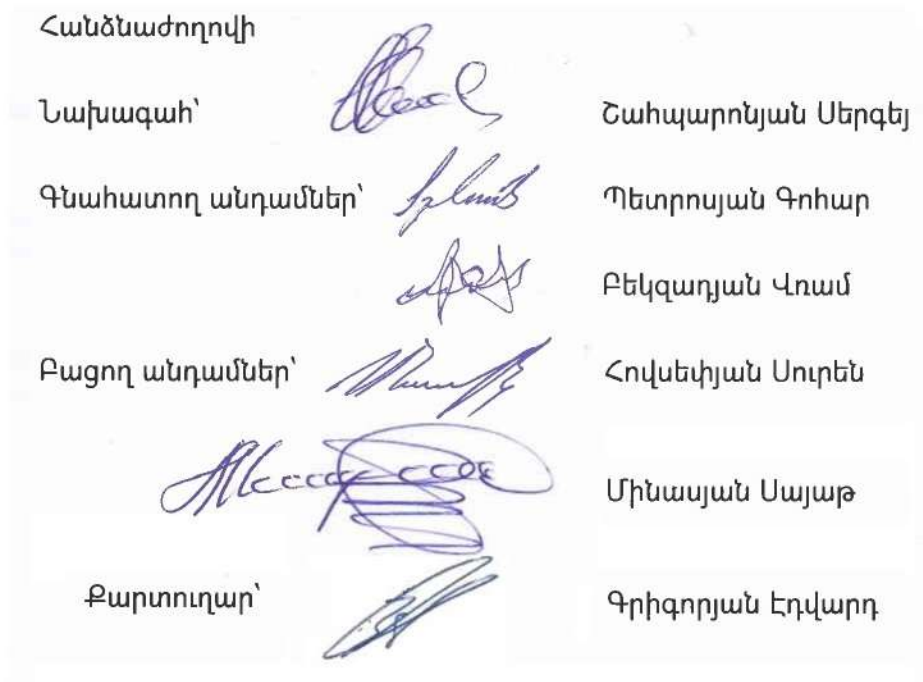 Հանձնաժողովի
Նախագահ՝ Շահպարոնյան Սերգեյ
Գնահատող անդամներ՝ Պետրոսյան Գոհար
Բեկզադյան Վռամ
Բացող անդամներ՝ Հովսեփյան Սուրեն
Մինասյան Սայաթ
Քարտուղար՝ Գրիգորյան Էդվարդ